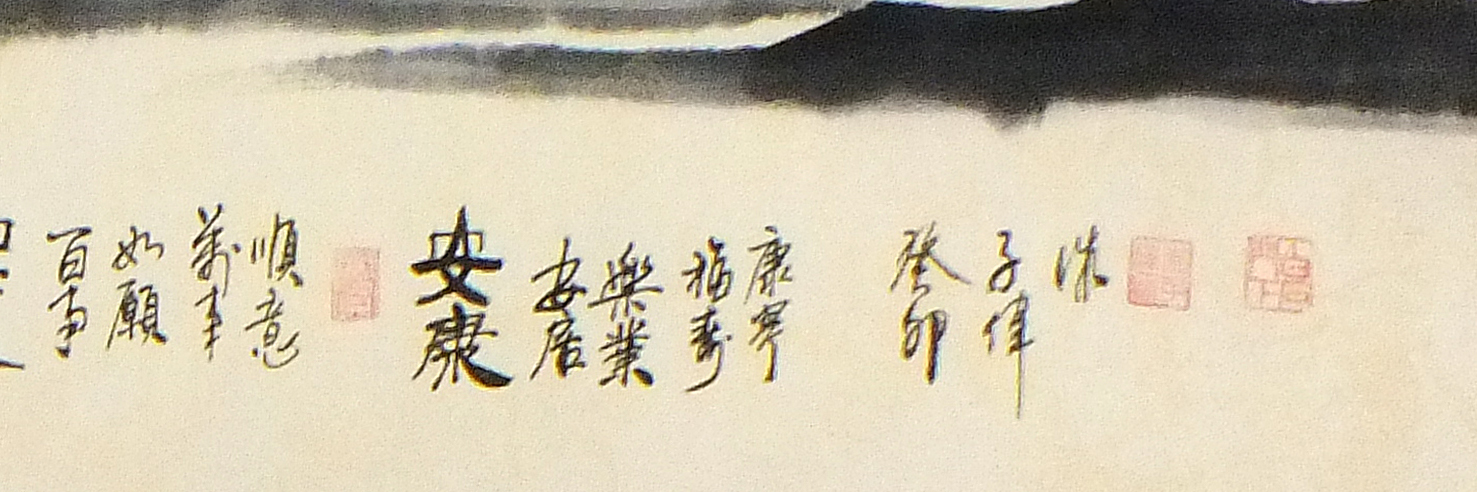 百事
如願
萬事
順意
安康
安居
樂業
福壽
康寧
癸卯
子偉